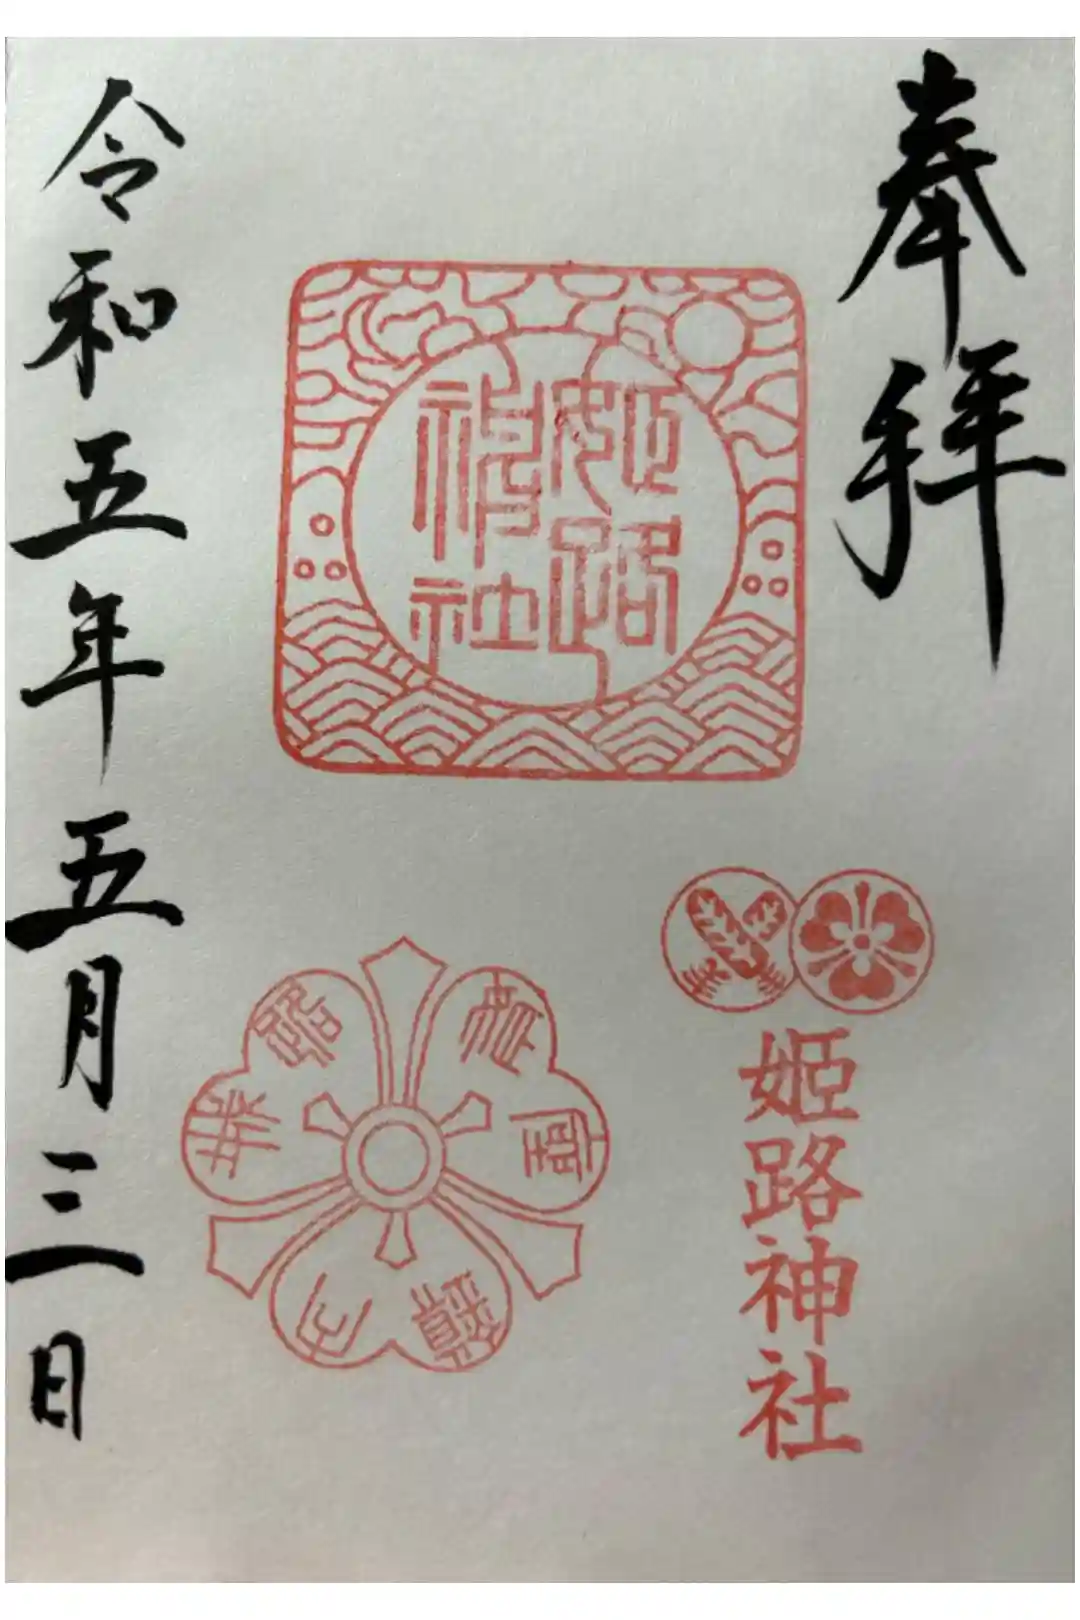 奉拝
姫路
神社
姫路神社
令和五年五月三日